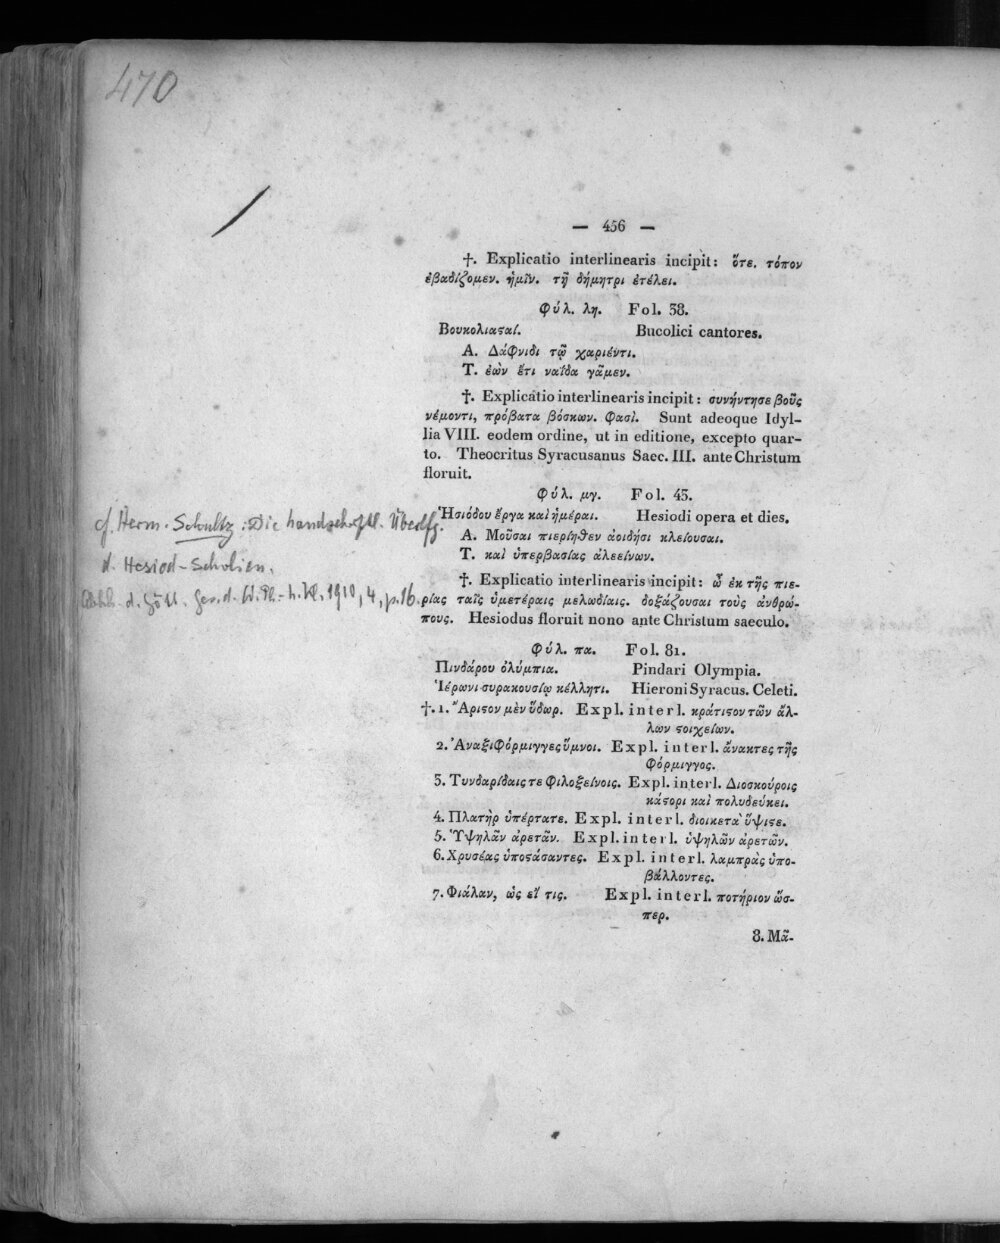 470
— 456 —
†. Explicatio interlinearis incipit: ὅτε. τόπον
ἐβαδίζομεν. ἡμῖν. τῇ δήμητρι ἐτέλει.
Φύλ. λη. Fol. 38.
Βουκολιαϛαί. Bucolici cantores.
Α. Δάφνιδι τῷ χαριέντι.
Τ. ἐὼν ἔτι ναΐδα γᾶμεν.
†. Explicatio interlinearis incipit: συνήντησε βοῦς
νέμοντι, πρόβατα βόσκων. φασί. Sunt adeoque Idyl-
lia VIII. eodem ordine, ut in editione, excepto quar-
to. Theocritus Syracusanus Saec. III. ante Christum
floruit.
Φύλ. μγ. Fol. 43.
Ἡσιόδου ἔργα καὶ ἡμέραι. Hesiodi opera et dies.
Α. Μοῦσαι πιερίηθεν ἀοιδῆσι κλείουσαι.
Τ. καὶ ὑπερβασίας ἀλεείνων.
†. Explicatio interlinearis incipit: ὦ ἐκ τῆς πιε-
ρίας ταῖς ὑμετέραις μελωδίαις. δοξάζουσαι τοὺς ἀνθρώ-
πους. Hesiodus floruit nono ante Christum saeculo.
cf. Herm. Schultz: Die handschriftl. Überlfg.
d. Hesiod-Scholien.
Abhh. d. Gött. Ges. d. W. Ph.-h. Kl. 1910, 4, p. 16.
Φύλ. πα. Fol. 81.
Πινδάρου ὀλύμπια. Pindari Olympia.
Ἱέρωνι συρακουσίῳ κέλλητι. Hieroni Syracus. Celeti.
†. 1. Ἄριϛον μὲν ὕδωρ. Expl. interl. κράτιϛον τῶν ἄλ-
λων ϛοιχείων.
2. Ἀναξιφόρμιγγες ὕμνοι. Expl. interl. ἄνακτες τῆς
φόρμιγγος.
3. Τυνδαρίδαις τε φιλοξείνοις. Expl. interl. Διοσκούροις
κάϛορι καὶ πολυδεύκει.
4. Πλατὴρ ὑπέρτατε. Expl. interl. διοικετὰ ὕψιϛε.
5. Ὑψηλᾶν ἀρετᾶν. Expl. interl. ὑψηλῶν ἀρετῶν.
6. Χρυσέας ὑποϛάσαντες. Expl. interl. λαμπρὰς ὑπο-
βάλλοντες.
7. Φιάλαν, ὡς εἴ τις. Expl. interl. ποτήριον ὥσ-
περ.
8. Μᾶ-